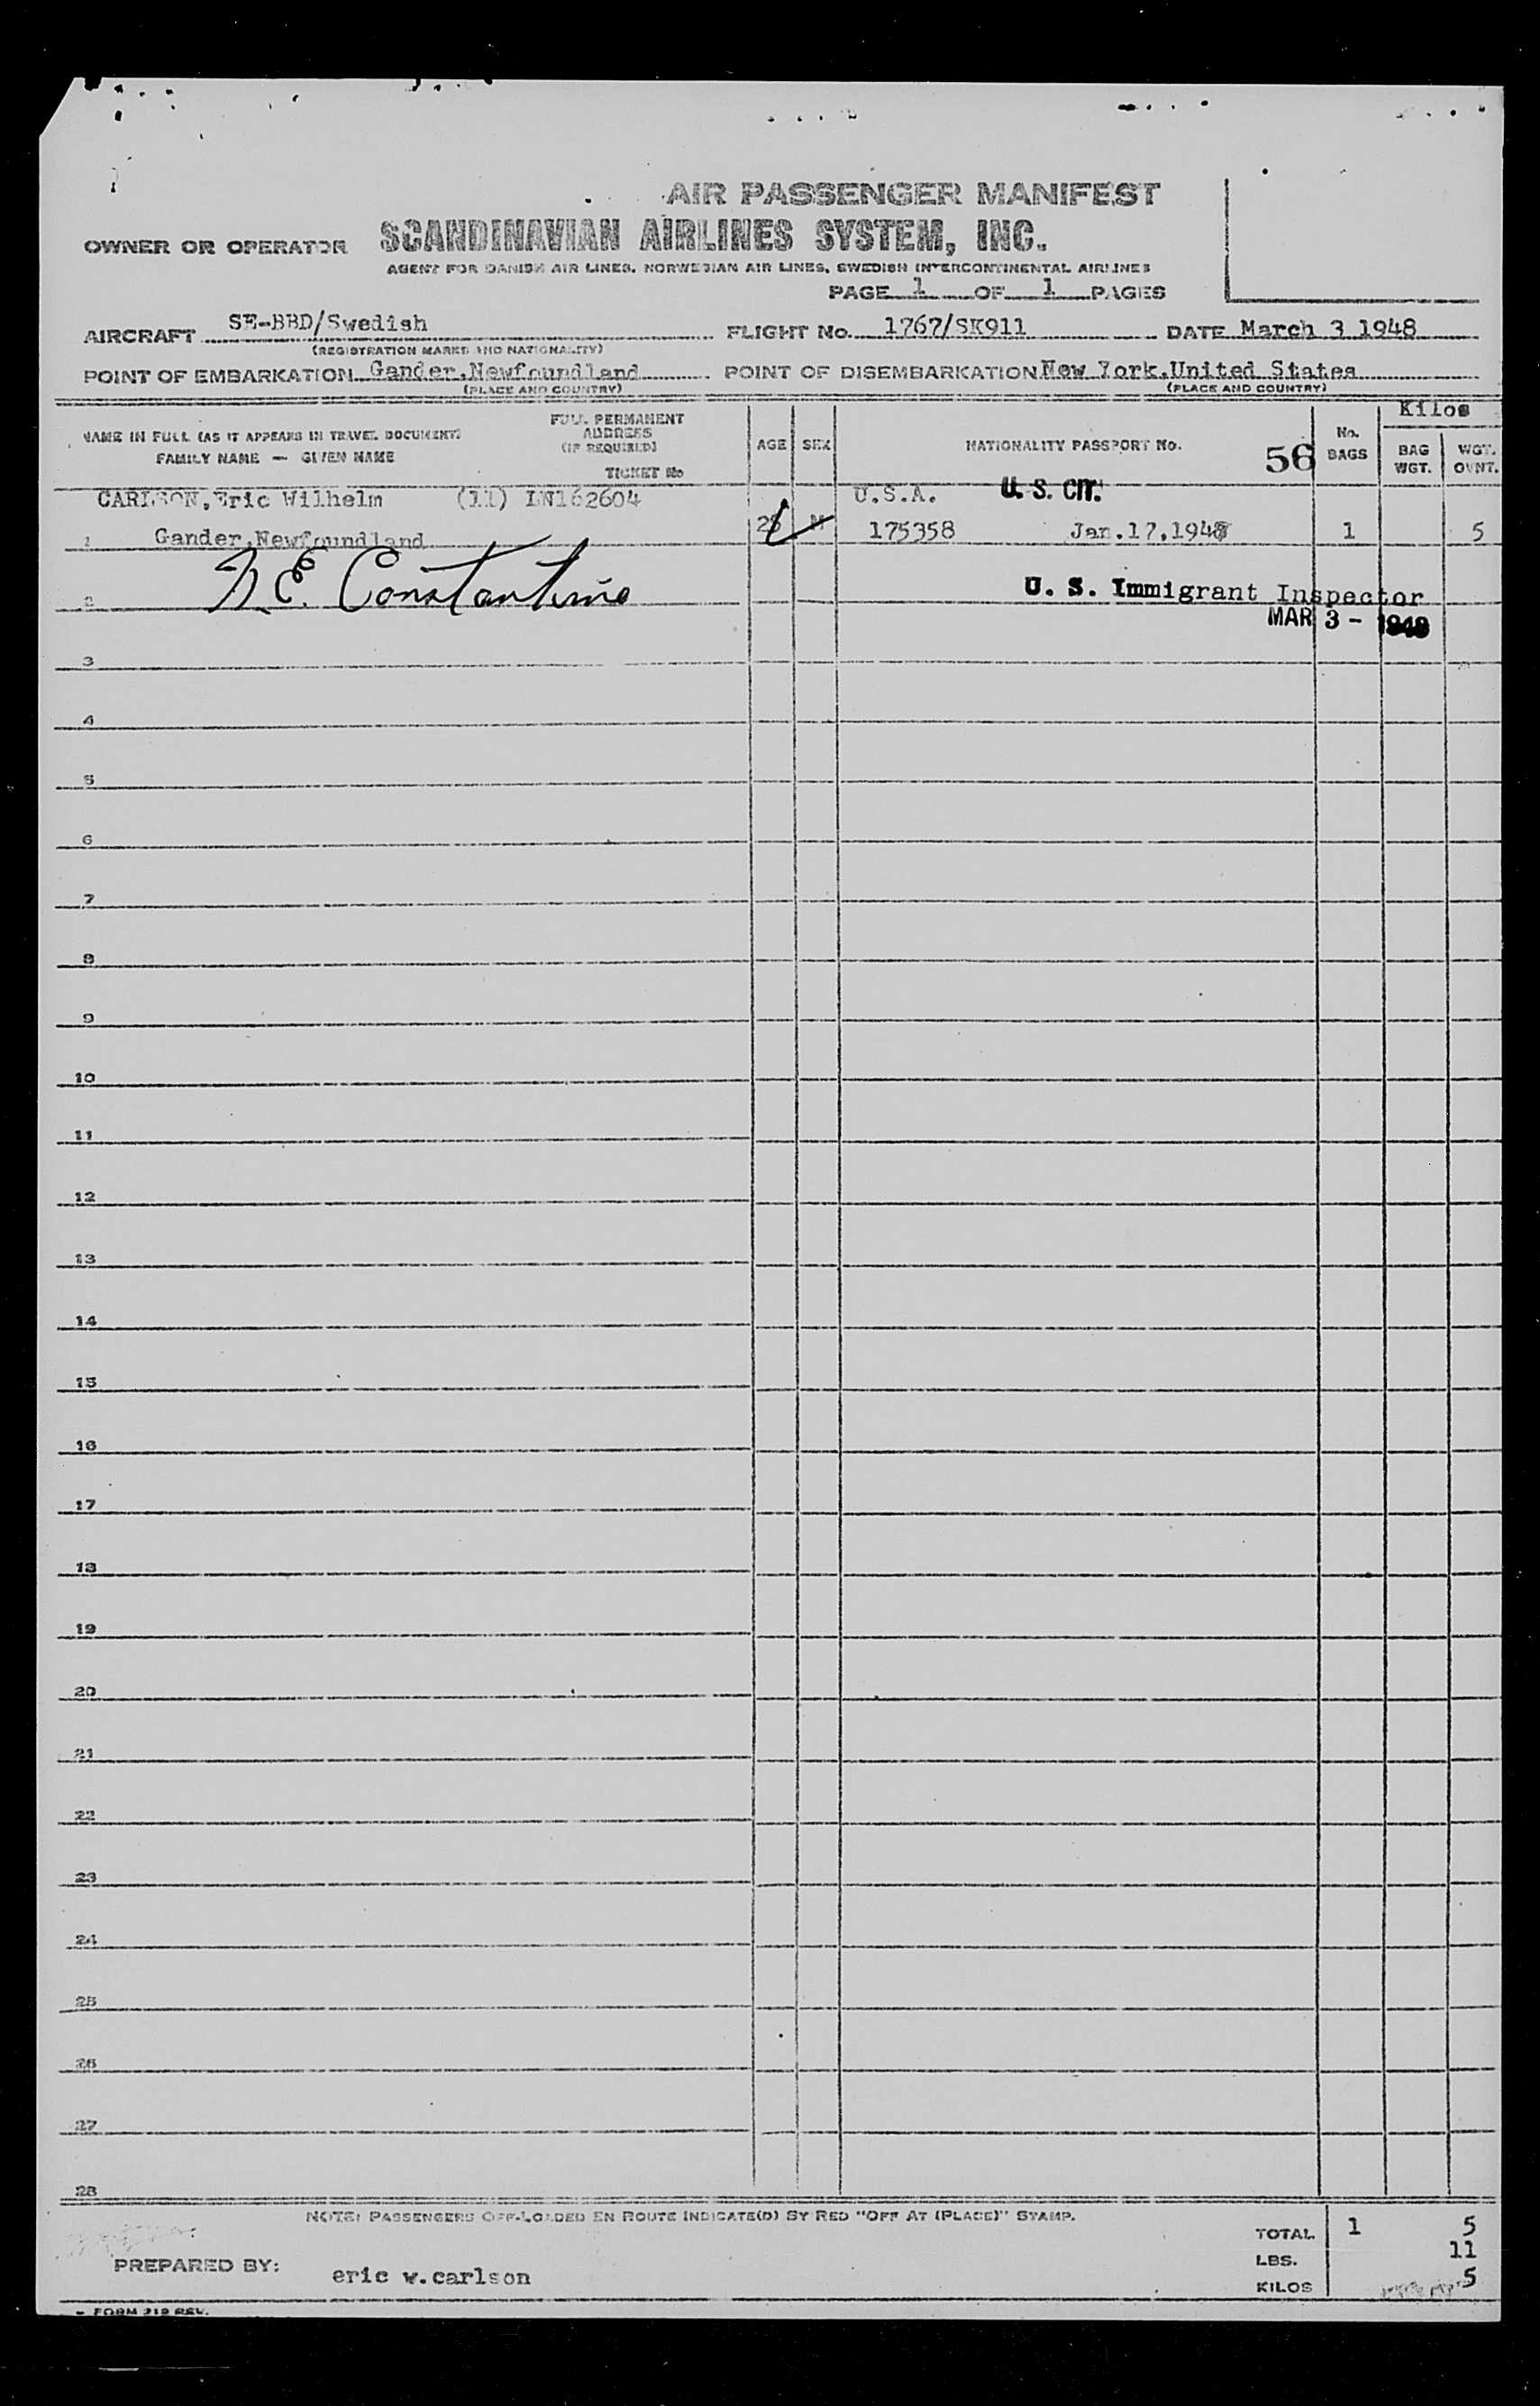 AIR PASSENGER MANIFEST
OWNER OR OPERATOR SCANDINAVIAN AIRLINES SYSTEM, INC.
AGENT FOR DANISH AIR LINES, NORWEGIAN AIR LINES, SWEDISH INTERCONTINENTAL AIRLINES
PAGE 1 OF 1 PAGES
AIRCRAFT SE-BBD/Swedish FLIGHT No. 1767/SK911 DATE March 3 1948
(REGISTRATION MARKS AND NATIONALITY)
POINT OF EMBARKATION Gander,Newfoundland POINT OF DISEMBARKATION New York,United States
(PLACE AND COUNTRY) (PLACE AND COUNTRY)
NAME IN FULL (AS IT APPEARS IN TRAVEL DOCUMENT)
FAMILY NAME — GIVEN NAME
FULL PERMANENT
ADDRESS
(IF REQUIRED)
TICKET No
AGE SEX NATIONALITY PASSPORT No. 56
No.
BAGS
Kilos
BAG
WGT.
WGT.
OVNT.
CARLSON,Eric Wilhelm (11) LN162604 U.S.A. U. S. CIT.
1 Gander,Newfoundland M 175358 Jan.17,1948 1 5
2 N.E. Constantine U. S. Immigrant Inspector
MAR 3 - 1948
3
4
5
6
7
8
9
10
11
12
13
14
15
16
17
18
19
20
21
22
23
24
25
26
27
28
NOTE: PASSENGERS OFF-LOADED EN ROUTE INDICATE(D) BY RED "OFF AT (PLACE)" STAMP.
TOTAL 1 5
LBS. 11
KILOS 5
PREPARED BY: eric w.carlson
- FORM 212 REV.